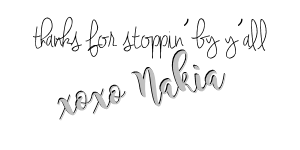 thanks for stoppin' by y'all
xoxo Nakia